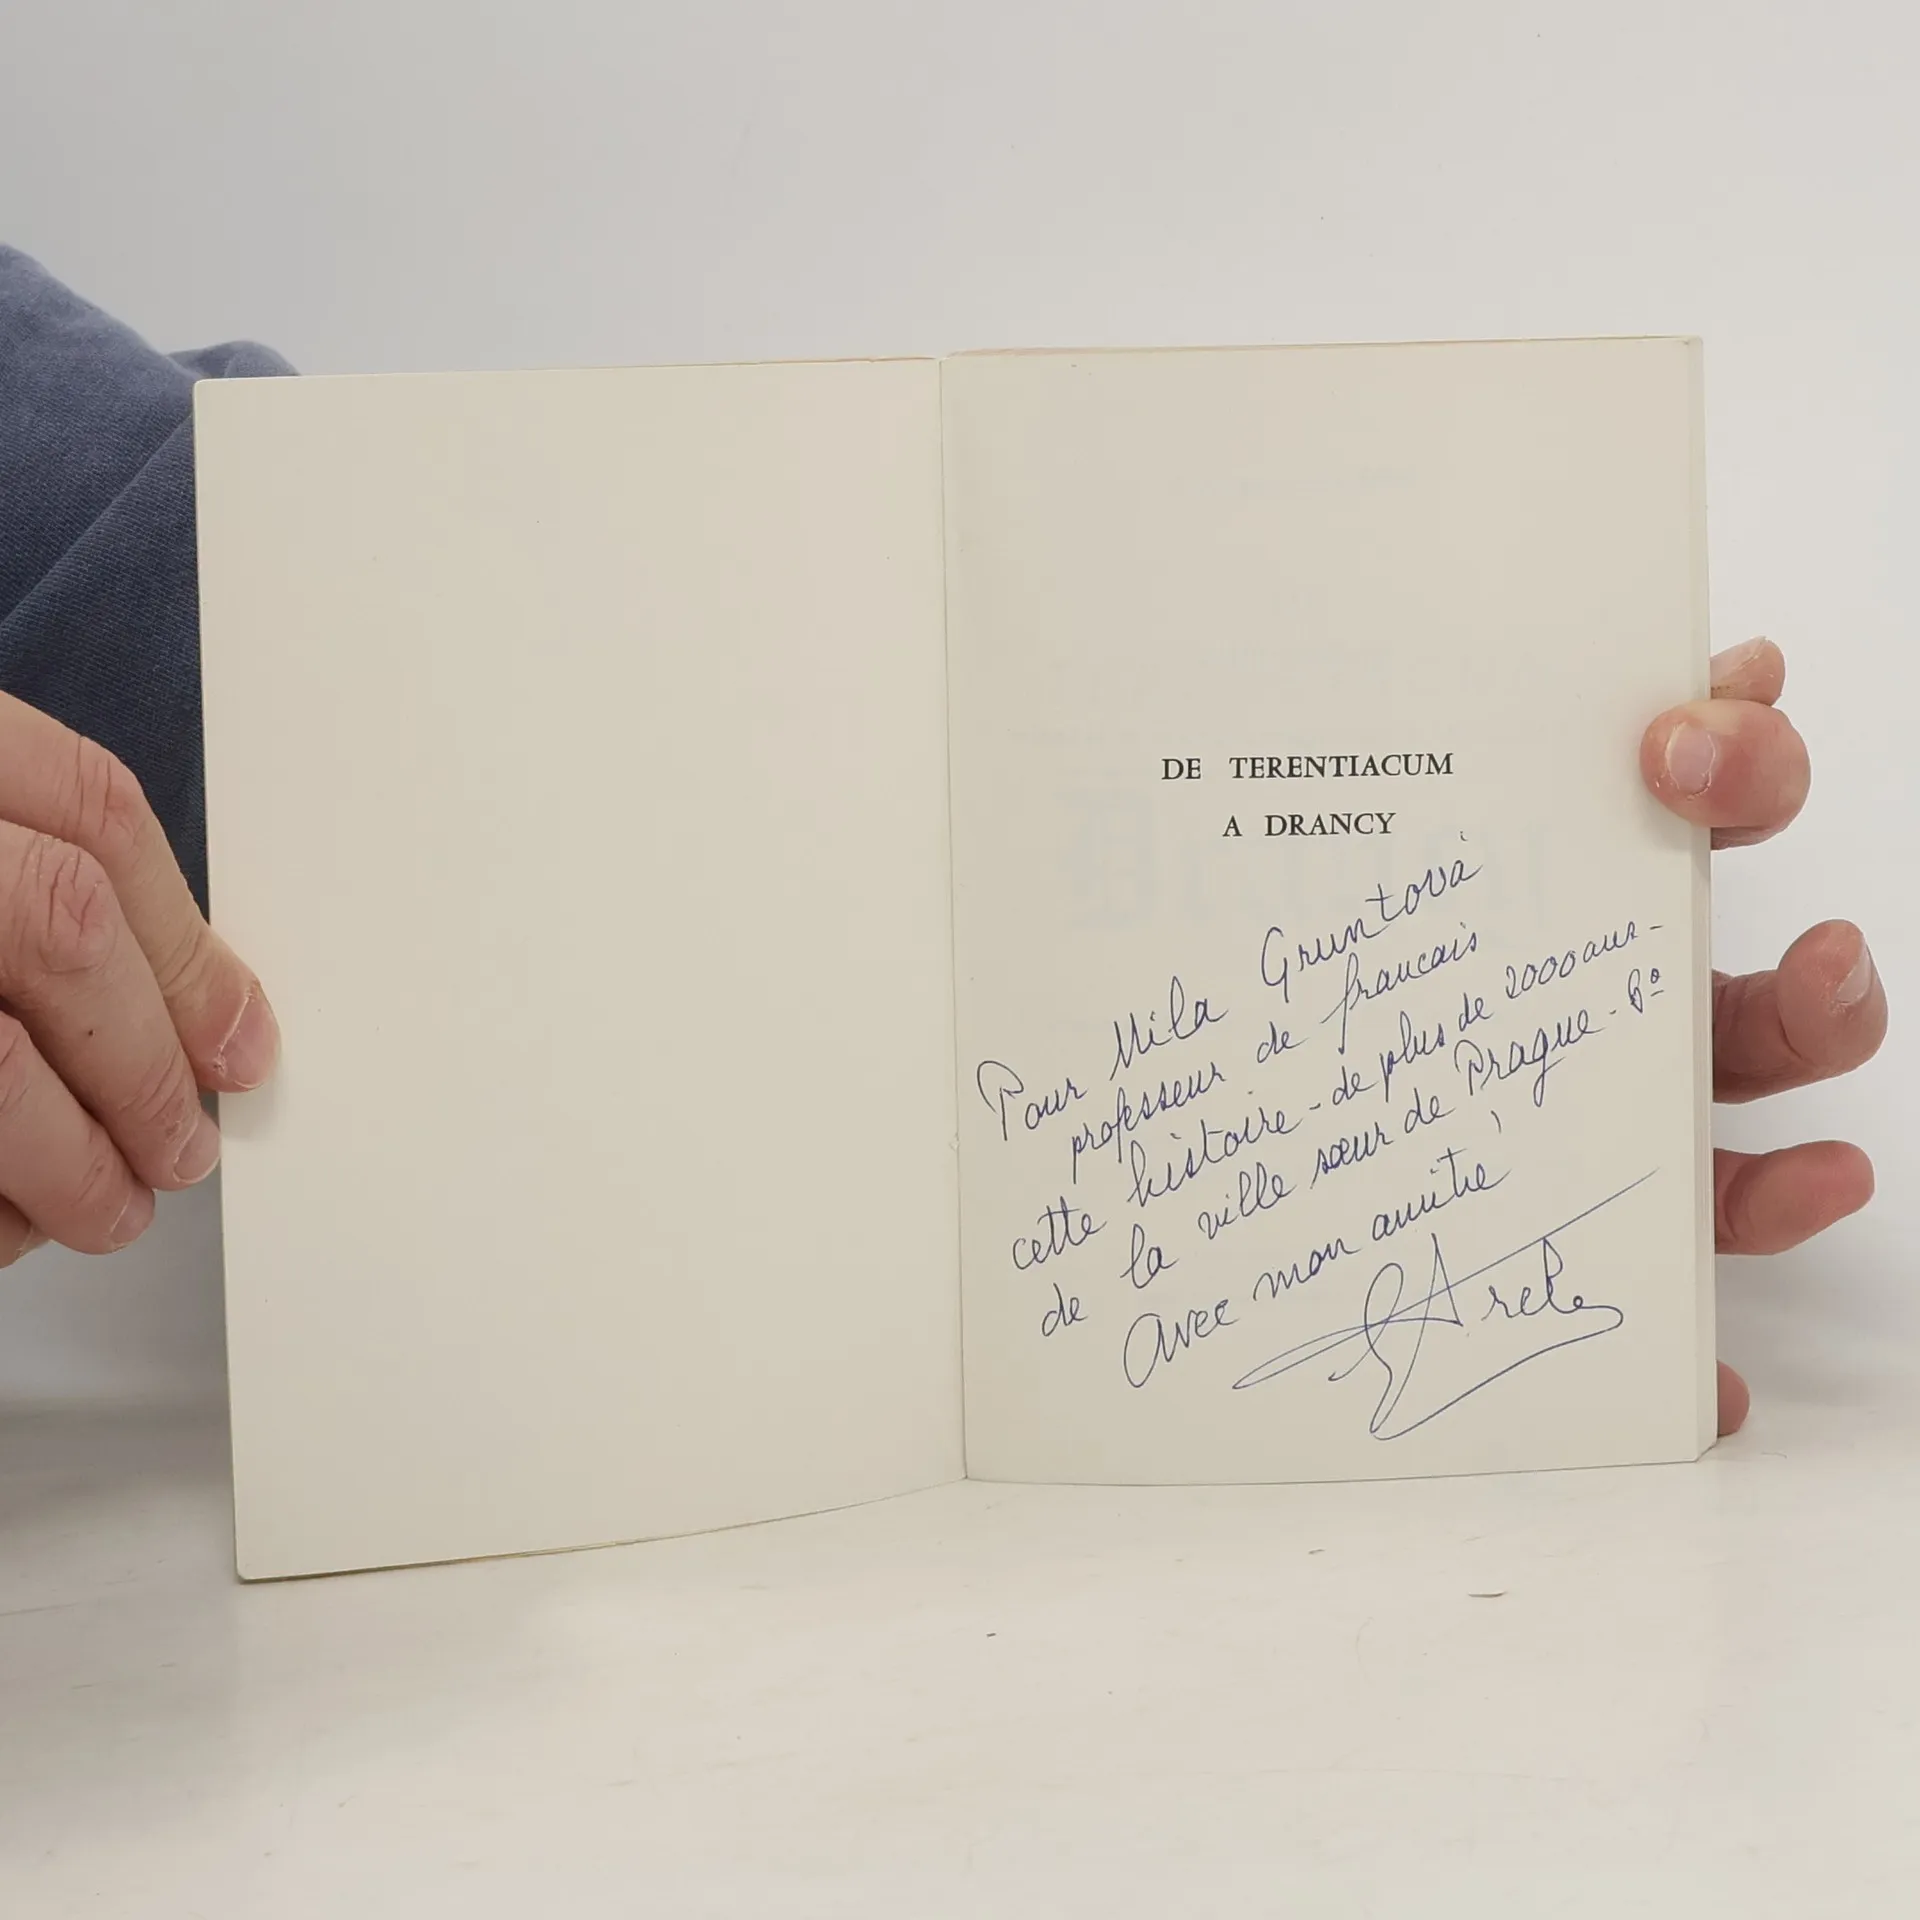 DE TERENTIACUM
A DRANCY
Pour Mila Gruntová
professeur de francais
cette histoire - de plus de 2000 ans -
de la ville sœur de Prague -
Avec mon amitié,